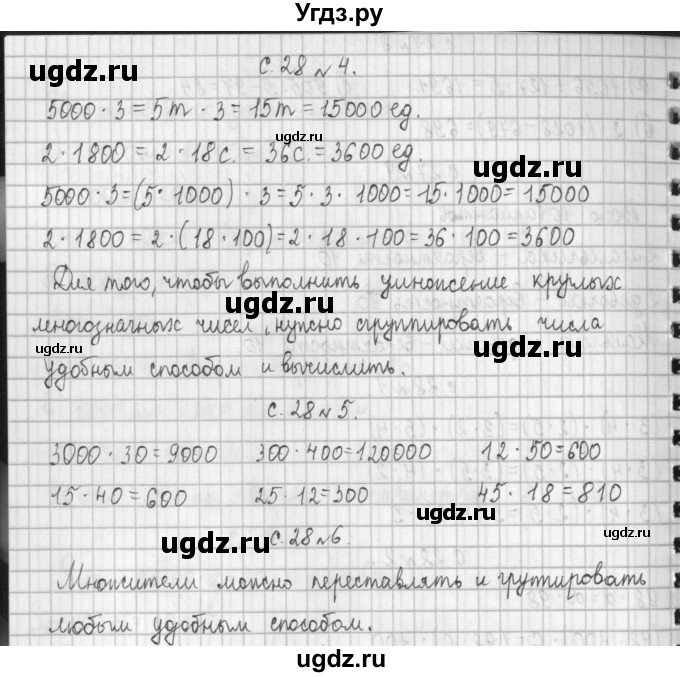 Угдз.ру
с. 28 № 4.
5000 · 3 = 5т · 3 = 15т = 15000 ед.
2 · 1800 = 2 · 18с. = 36с. = 3600 ед.
5000 · 3 = (5 · 1000) · 3 = 5 · 3 · 1000 = 15 · 1000 = 15000
2 · 1800 = 2 · (18 · 100) = 2 · 18 · 100 = 36 · 100 = 3600
Для того, чтобы выполнить умножение круглых
многозначных чисел, нужно сгруппировать числа
удобным способом и вычислить.
с. 28 № 5.
3000 · 30 = 9000 300 · 400 = 120000 12 · 50 = 600
15 · 40 = 600 25 · 12 = 300 45 · 18 = 810
с. 28 № 6.
Множители можно переставлять и групировать
любым удобным способом.
ugdz.ru
ugdz.ru
ugdz.ru
ugdz.ru
ugdz.ru
ugdz.ru
ugdz.ru
ugdz.ru
ugdz.ru
ugdz.ru
ugdz.ru
ugdz.ru
ugdz.ru